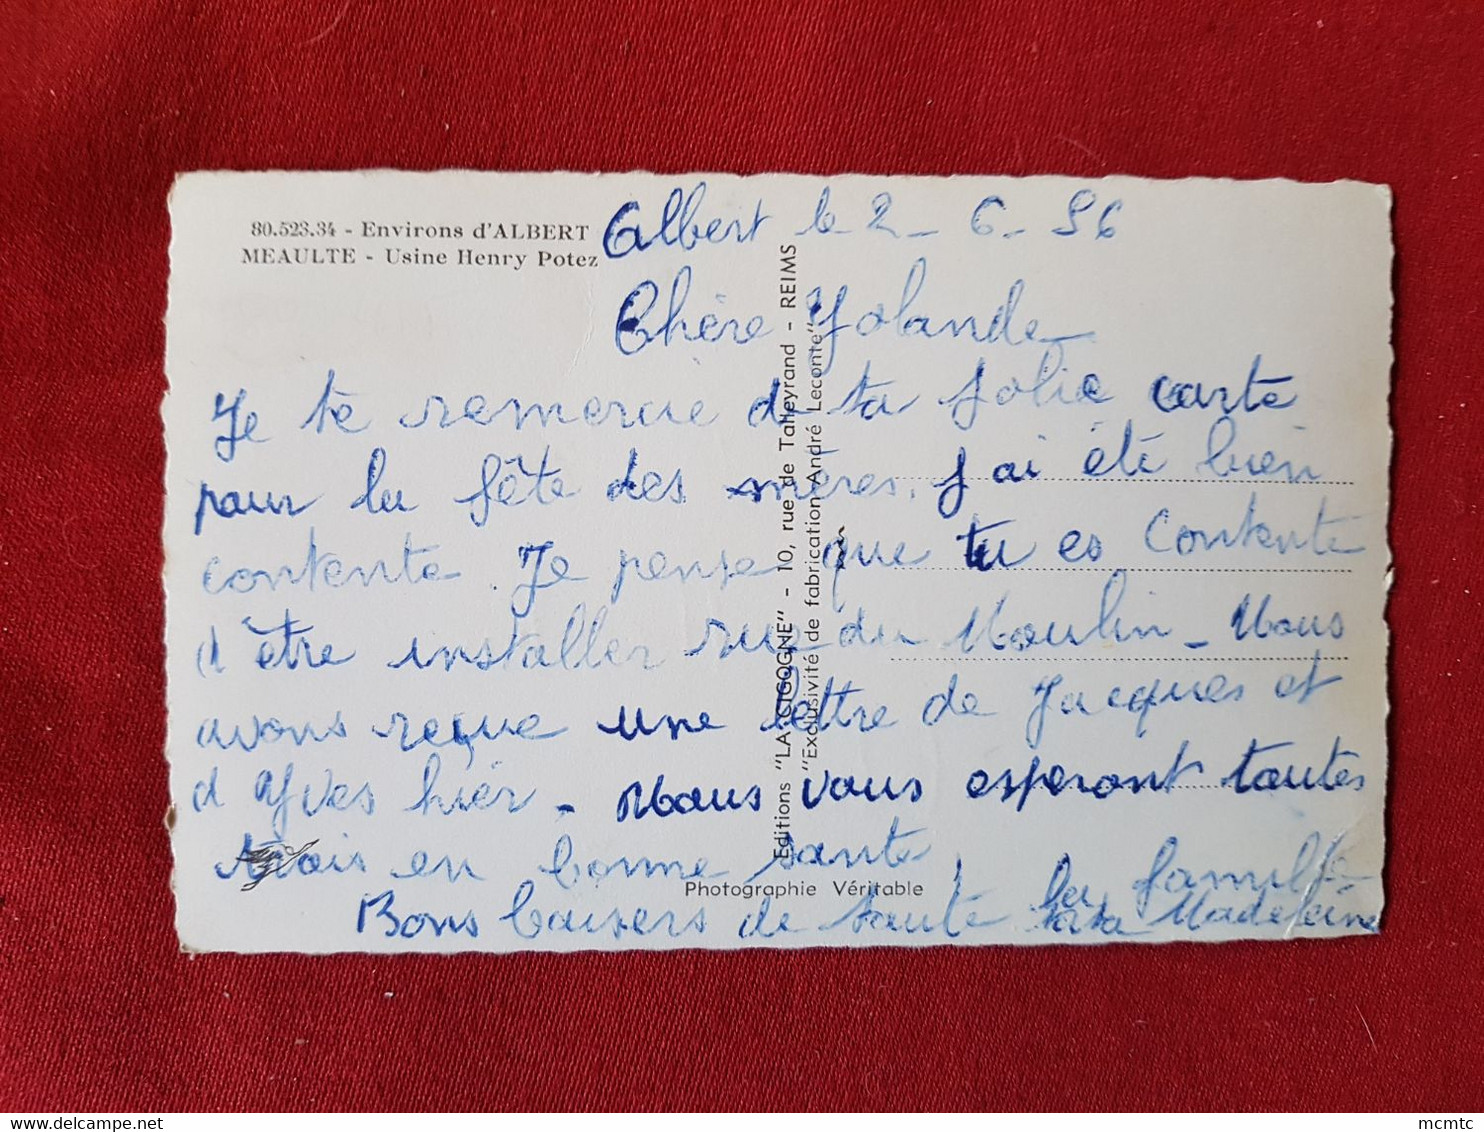 80.523.34 - Environs d'ALBERT
MEAULTE - Usine Henry Potez
Albert le 2 - 6 - 56
Chère Yolande
Je te remercie de ta jolie carte
pour la fête des mères. J'ai été bien
contente. Je pense que tu es contente
d'être installer rue du Moulin - Nous
avons reçue une lettre de Jacques et
d'Yves hier - Nous vous esperont toutes
trois en bonne sante,
Bons baisers de toute la famille
tata Madeleine
Editions "LA CIGOGNE" - 10, rue de Talleyrand - REIMS
"Exclusivité de fabrication André Leconte"
Photographie Véritable
mcmtc